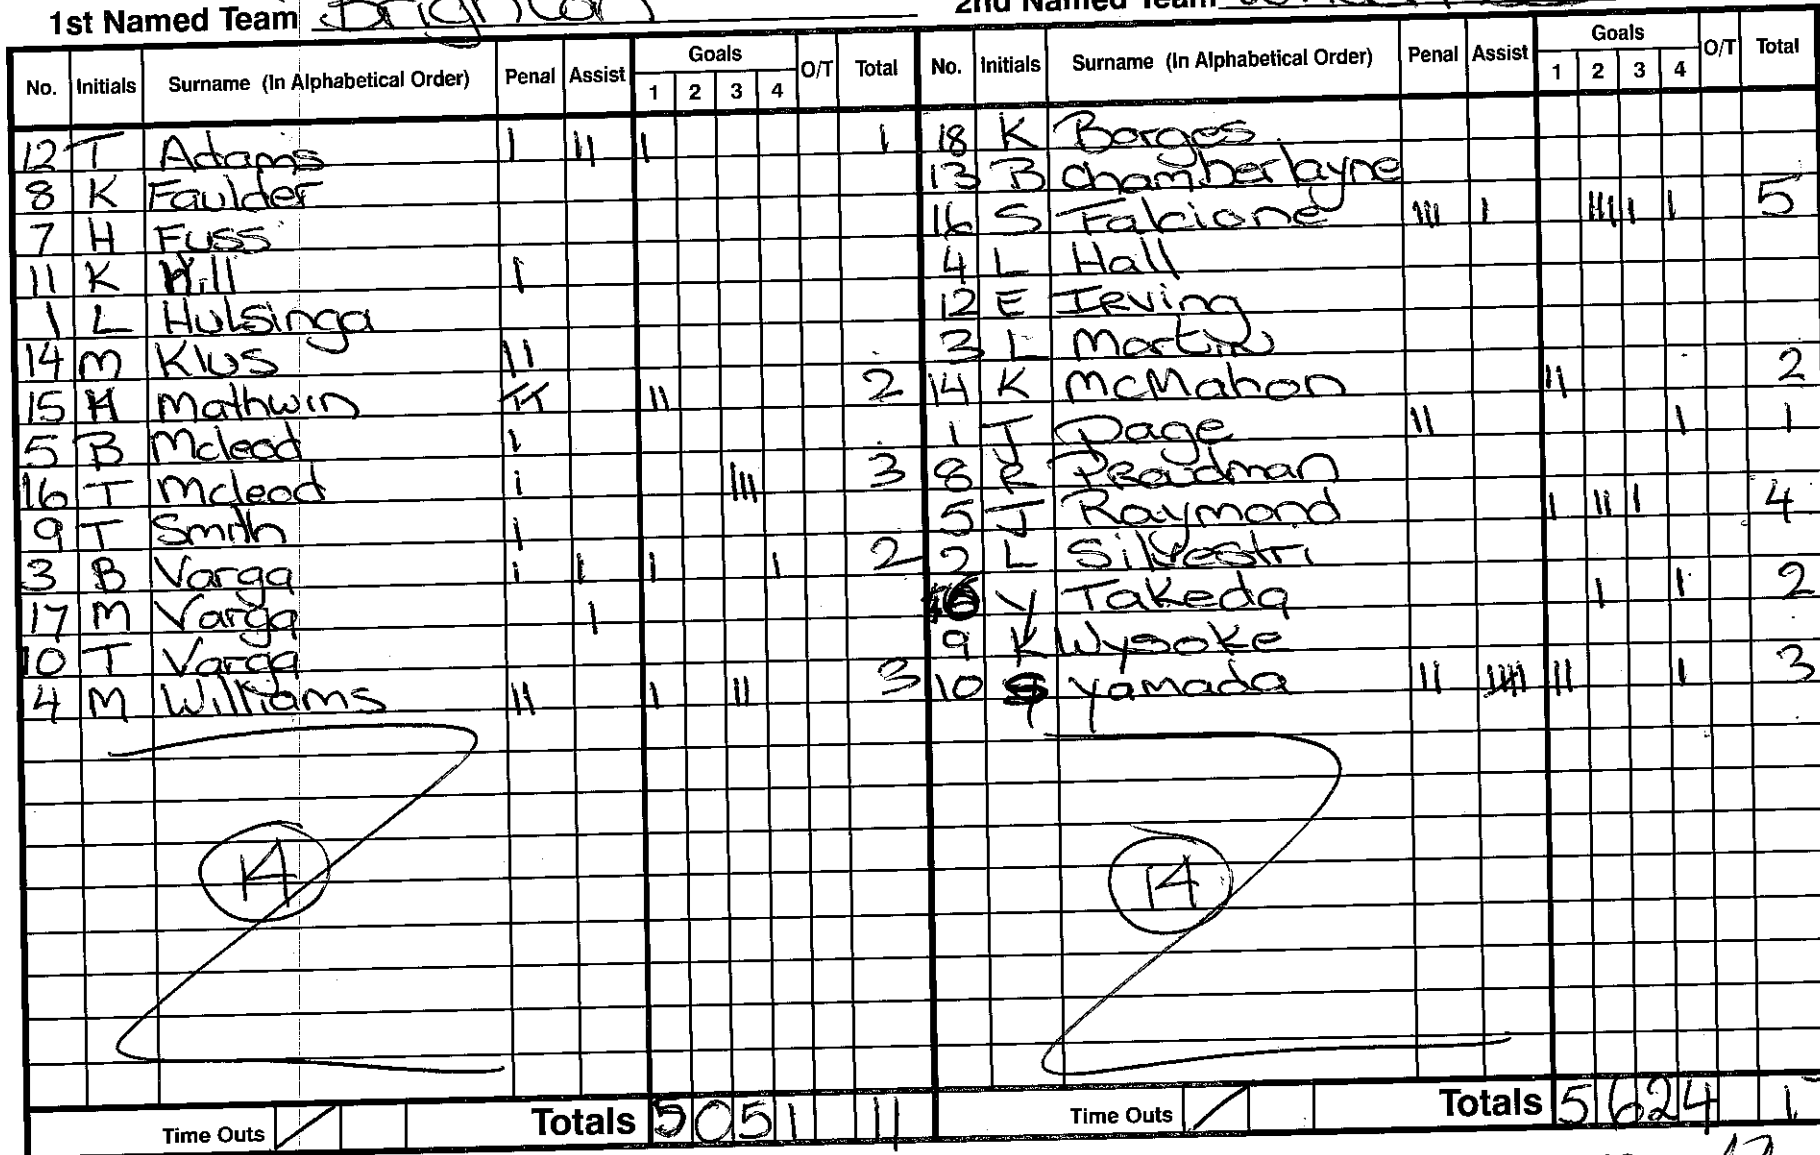 1st Named Team Brighton
2nd Named Team
No. Initials Surname (In Alphabetical Order) Penal Assist Goals 1 2 3 4 O/T Total
12 T Adams I II I 1
8 K Faulder
7 H Fuss
11 K Hill I
1 L Hulsinga
14 M Klus II
15 H Mathwin II II 2
5 B Mcleod I
16 T Mcleod I III 3
9 T Smith I
3 B Varga I I I I 2
17 M Varga I
10 T Varga
4 M Williams II I II 3
14
Time Outs / Totals 5 0 5 1 11
No. Initials Surname (In Alphabetical Order) Penal Assist Goals 1 2 3 4 O/T Total
18 K Borges
13 B Chamberlayne
16 S Falcione III I III I I 5
4 L Hall
12 E Irving
3 L Martin
14 K McMahon II 2
1 J Page II I 1
8 R Preadman
5 J Raymond I II I 4
2 L Silvestri
16 Y Takeda I I 2
9 K Wysoke
10 Yamada II IIIII II I 3
14
Time Outs / Totals 5 6 2 4
17